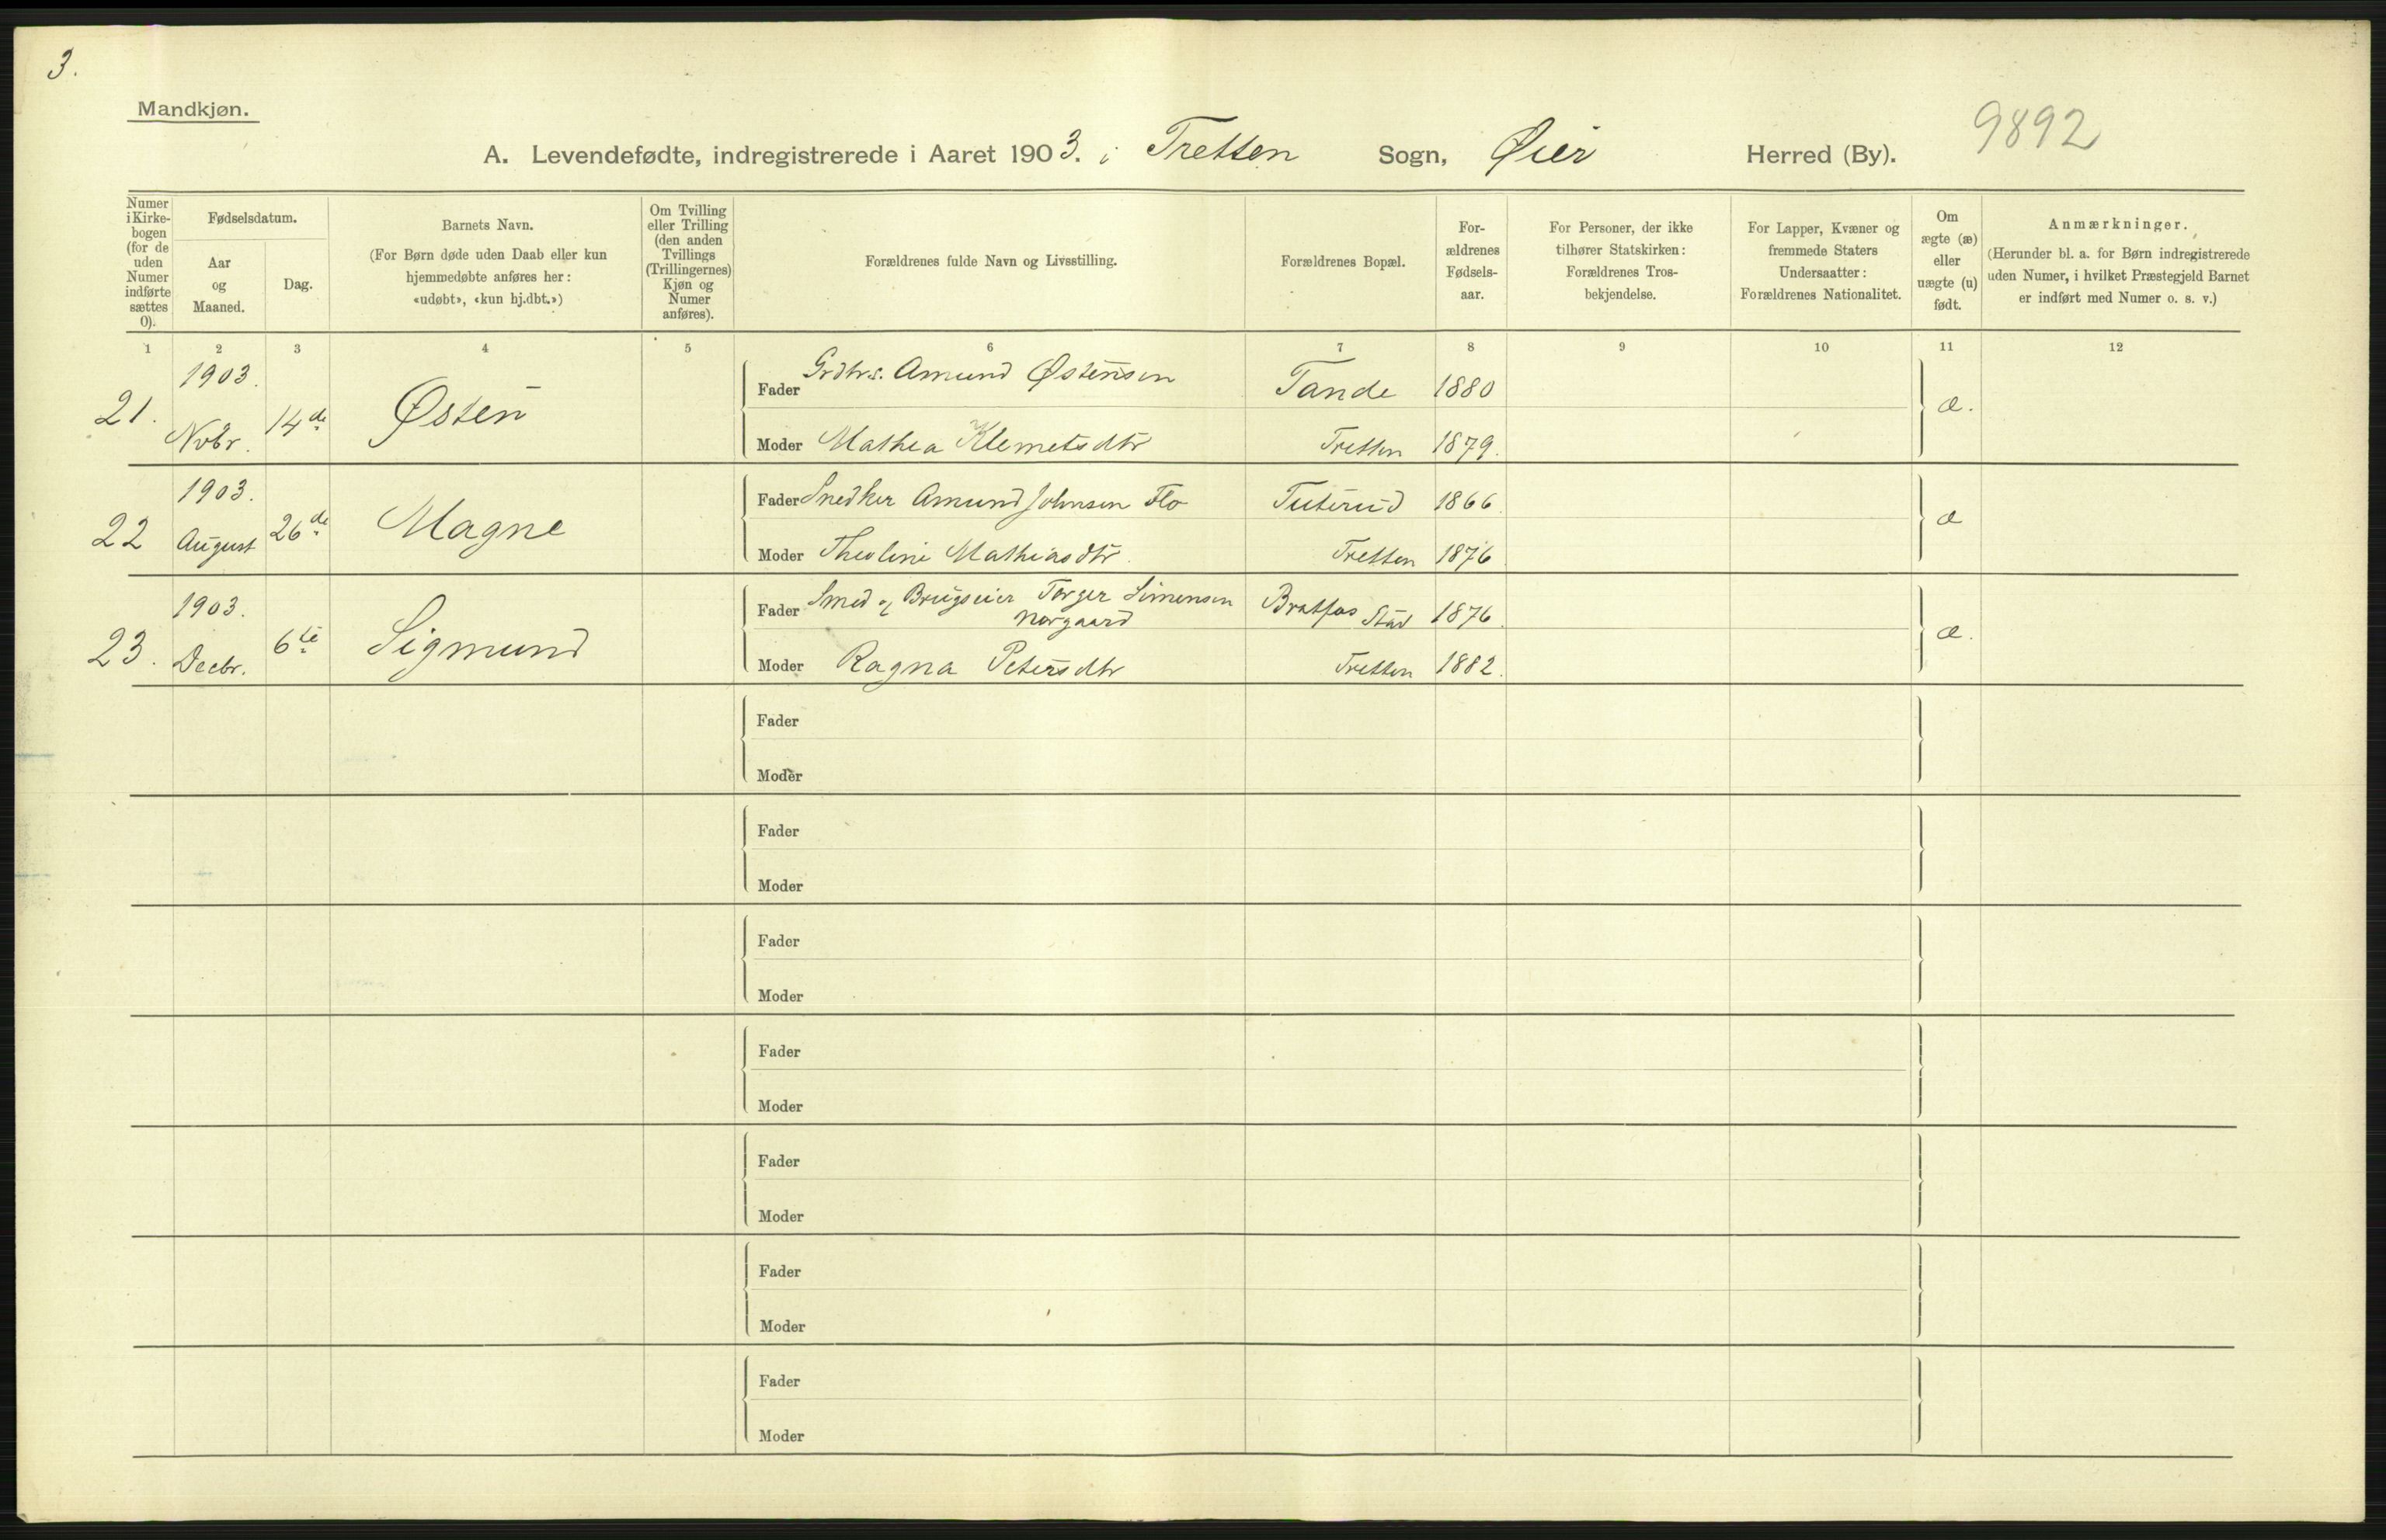 3.
Mandkjøn.
9892
A. Levendefødte, indregistrerede i Aaret 1903. i Tretten Sogn, Øier Herred (By).
Numer i Kirkebogen (for de uden Numer indførte sættes 0).
Fødselsdatum.
Aar og Maaned.
Dag.
Barnets Navn.
(For Børn døde uden Daab eller kun
hjemmedøbte anføres her:
«udøbt», «kun hj.dbt.»)
Om Tvilling
eller Trilling
(den anden
Tvillings
(Trillingernes)
Kjøn og
Numer
anføres).
Forældrenes fulde Navn og Livsstilling.
Forældrenes Bopæl.
For-
ældrenes
Fødsels-
aar.
For Personer, der ikke
tilhører Statskirken:
Forældrenes Tros-
bekjendelse.
For Lapper, Kvæner og
fremmede Staters
Undersaatter:
Forældrenes Nationalitet.
Om
ægte (æ)
eller
uægte (u)
født.
Anmærkninger.
(Herunder bl. a. for Børn indregistrerede
uden Numer, i hvilket Præstegjeld Barnet
er indført med Numer o. s. v.)
1 2 3 4 5 6 7 8 9 10 11 12
21. 1903. Novbr. 14de Østen
Fader Grdbrs. Amund Østensen Tande 1880
Moder Mathea Klemetsdtr Tretten 1879.
æ.
22 1903. August 26de Magne
Fader Snedker Amund Johnsen Flo Tuterud 1866
Moder Theoline Mathiasdtr. Tretten 1876
æ
23. 1903. Decbr. 6te Sigmund
Fader Smed og Brugseier Torger Simensen Norgaard Bratfos 1876.
Moder Ragna Petersdtr Tretten 1882.
æ.
Fader
Moder
Fader
Moder
Fader
Moder
Fader
Moder
Fader
Moder
Fader
Moder
Fader
Moder